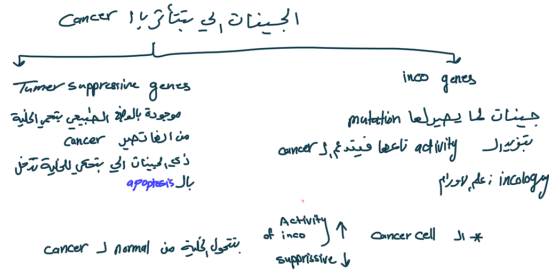 الجينات الي بتتأثر بال cancer
Tumer suppressive genes
موجودة بالوضع الطبيعي بتحمي الخلية
من انها تصير cancer
زي الجينات الي بتحكي للخلية تدخل
بال apoptosis
inco genes
جينات لما يصيرلها mutation
بتزيد ال activity تاعها فبتدعم ال cancer
incology : علم الاورام
* ال cancer cell
Activity of inco ↑
suppirssive ↓
بتتحول الخلية من normal ل cancer